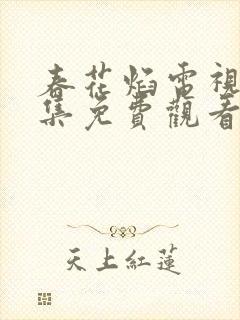 春花焰電視
集免費觀看
天上紅蓮